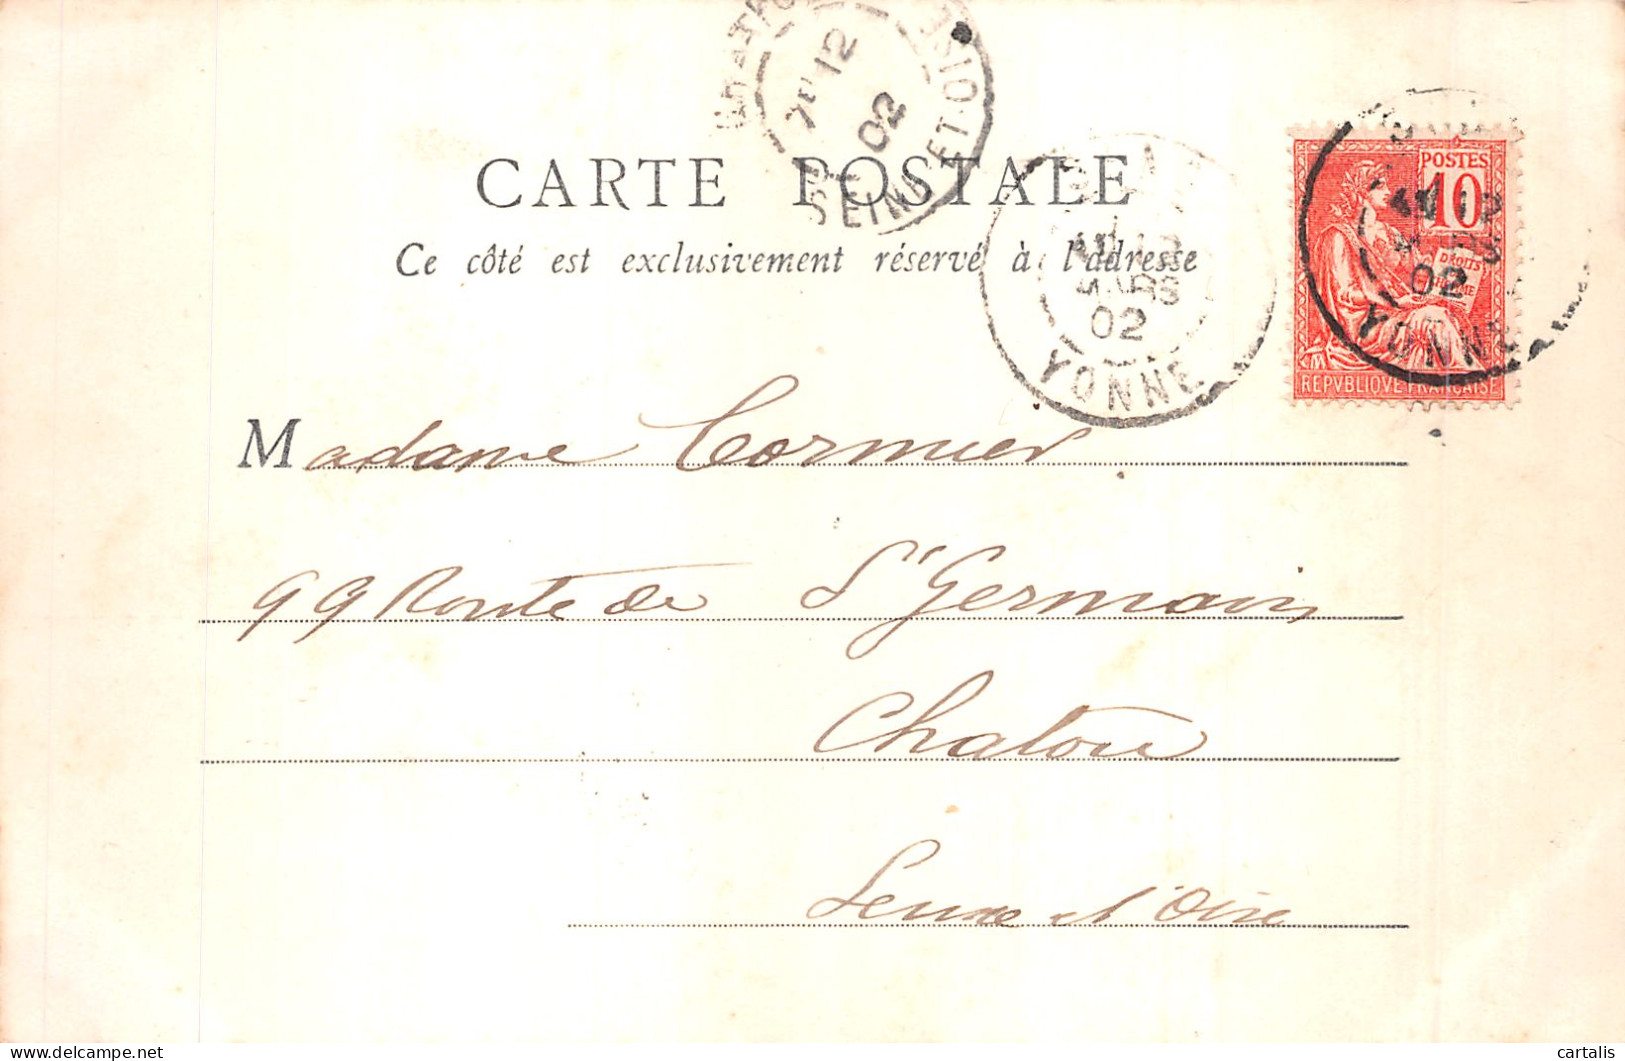 CHATOU
7E 12
02
SEINE-ET-OISE
CARTE POSTALE
Ce côté est exclusivement réservé à l'adresse
12
MARS
02
YONNE
POSTES
10
DROITS
DE
L'HOMME
12
02
YONNE
REPVBLIQVE FRANÇAISE
Madame Cormier
99 Route de St Germain
Chatou
Seine et Oise
cartalis